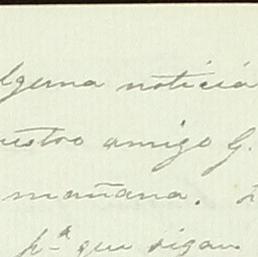 lguna noticia
uestro amigo G.
mañana.
pª que sigan